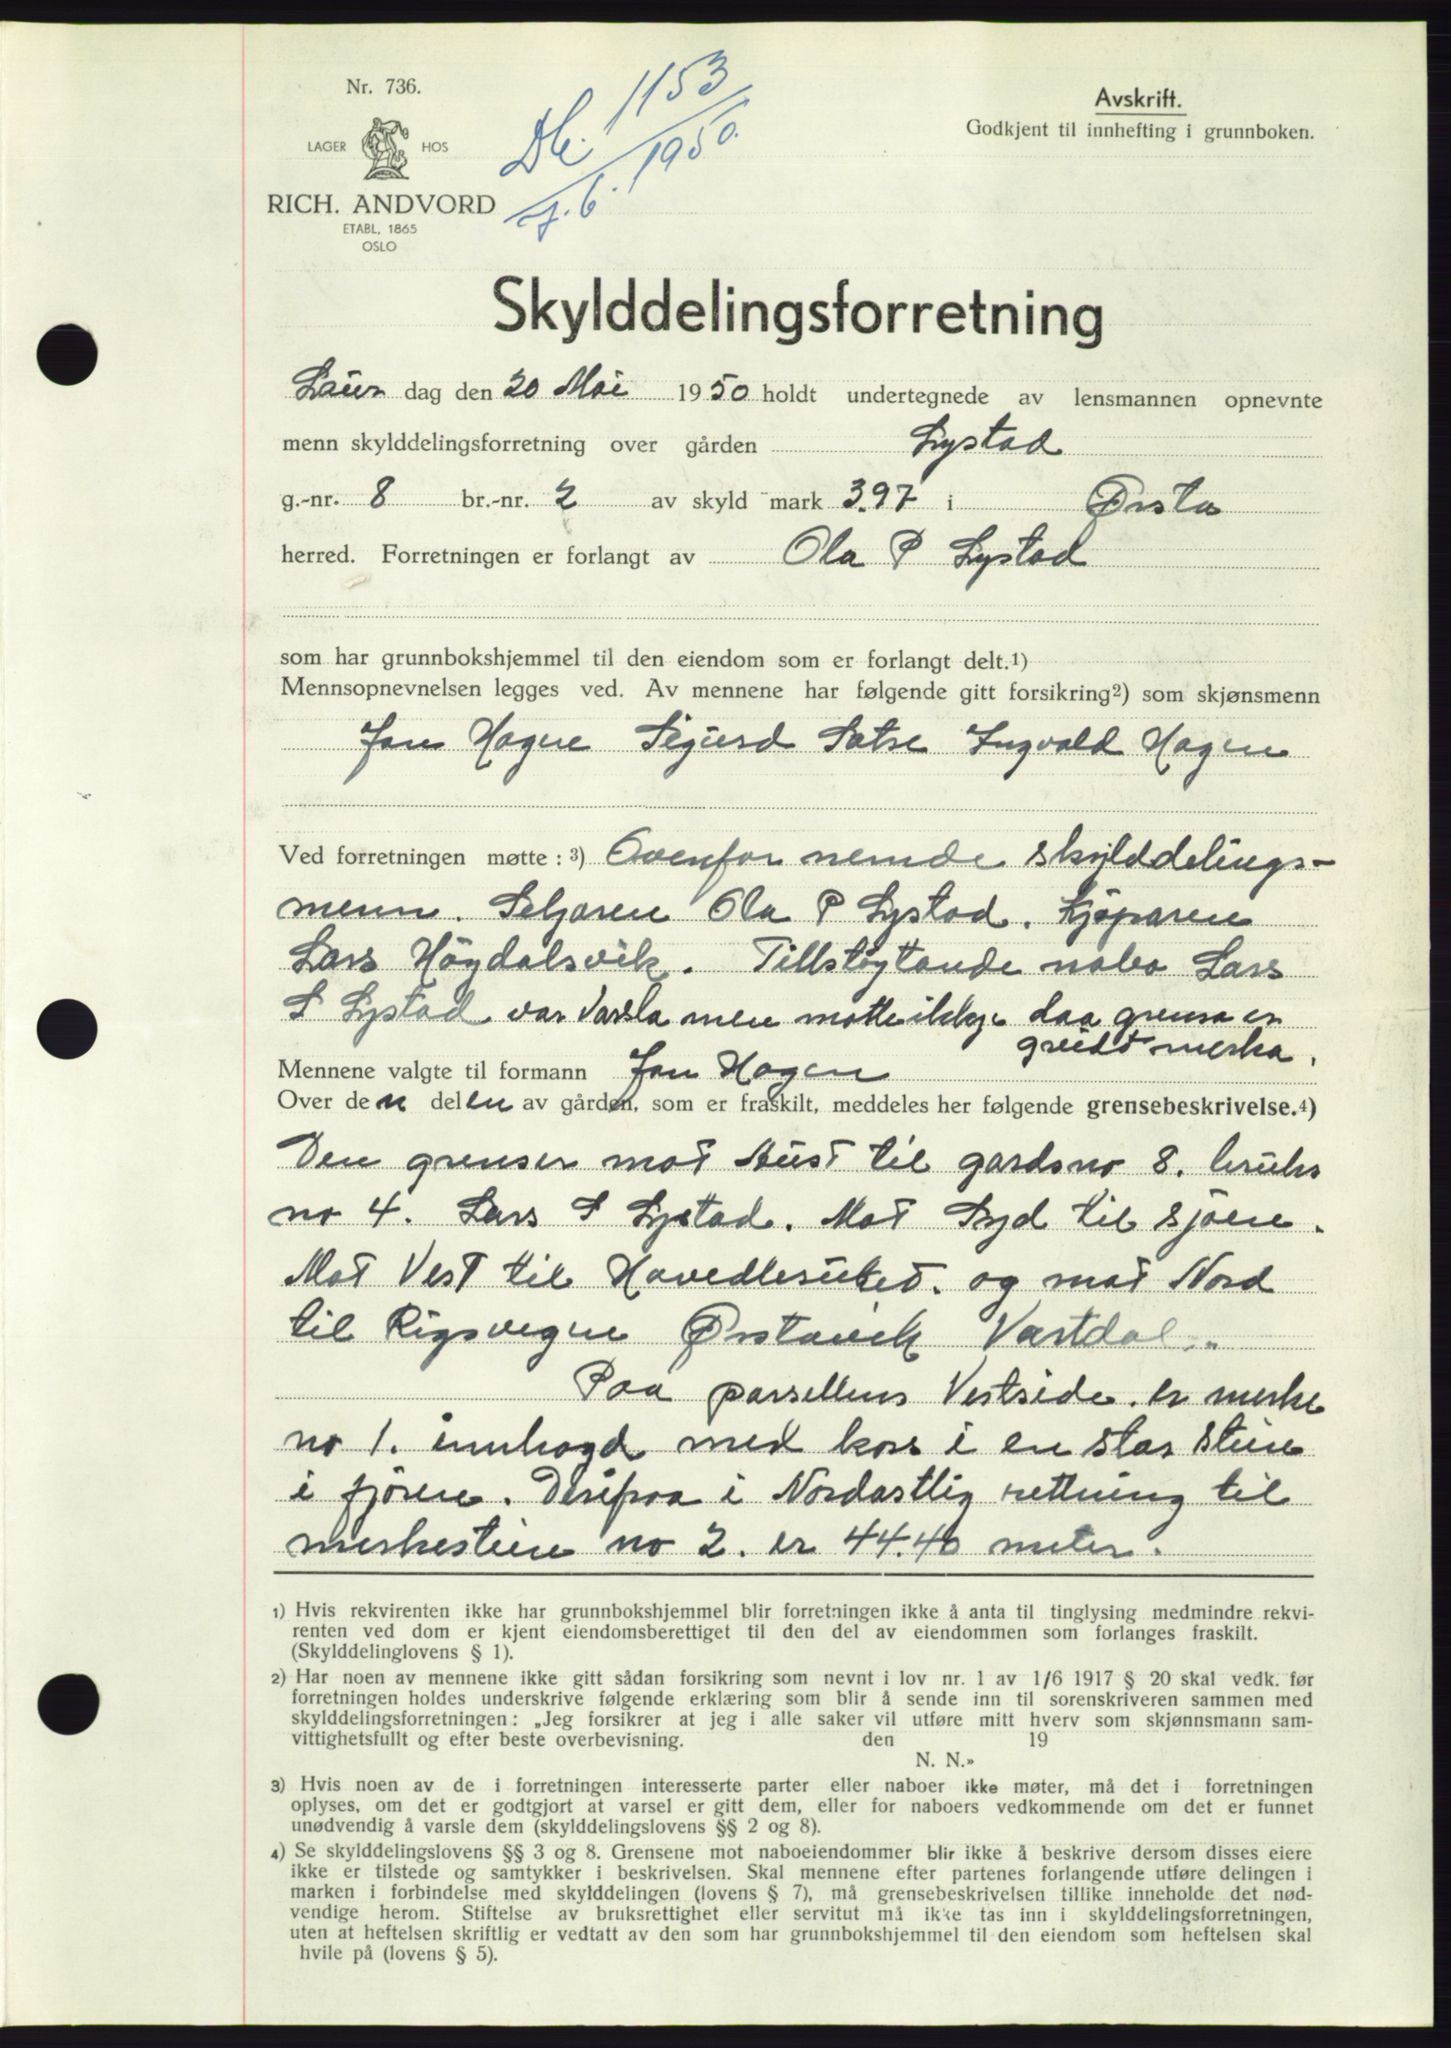 Nr. 736.
LAGER HOS
RICH. ANDVORD
ETABL. 1865
OSLO
Db. 1153
7.6. 1950.
Avskrift.
Godkjent til innhefting i grunnboken.
Skylddelingsforretning
Laur dag den 20 Mai 1950 holdt undertegnede av lensmannen opnevnte
menn skylddelingsforretning over gården Lystad
g.-nr. 8 br.-nr. 2 av skyld mark 3.97 i Ørsta
herred. Forretningen er forlangt av Ola P Lystad
som har grunnbokshjemmel til den eiendom som er forlangt delt.1)
Mennsopnevnelsen legges ved. Av mennene har følgende gitt forsikring2) som skjønsmenn
Jon Hagen Sigurd Sætre Ingvald Hagen
Ved forretningen møtte: 3) Ovenfor nemde skylddelings-
menn. Seljaren Ola P Lystad. Kjøparen
Lars Högdalsvik. Tillstøytande nabo Lars
S Lystad var varsla men møtte ikkje daa grensa er
greidt merka.
Mennene valgte til formann Jon Hagen
Over den delen av gården, som er fraskilt, meddeles her følgende grensebeskrivelse.4)
Den grenser mot Aust til gardsno 8. bruks
no 4. Lars S Lystad. Mot Syd til sjøen.
Mot Vest til Hovedbruket. og mot Nord
til Rigsvegen Ørstavik Vartdal.
Paa parsellens Vestside. er merke
no 1. innhogd med kors i en stor steine
i fjøren. Derifraa i Nordøstlig rettning til
merkesteine no 2. er 44.40 meter.
1) Hvis rekvirenten ikke har grunnbokshjemmel blir forretningen ikke å anta til tinglysing medmindre rekvi-
renten ved dom er kjent eiendomsberettiget til den del av eiendommen som forlanges fraskilt.
(Skylddelinglovens § 1).
2) Har noen av mennene ikke gitt sådan forsikring som nevnt i lov nr. 1 av 1/6 1917 § 20 skal vedk. før
forretningen holdes underskrive følgende erklæring som blir å sende inn til sorenskriveren sammen med
skylddelingsforretningen: „Jeg forsikrer at jeg i alle saker vil utføre mitt hverv som skjønnsmann sam-
vittighetsfullt og efter beste overbevisning. den 19
N. N.»
3) Hvis noen av de i forretningen interesserte parter eller naboer ikke møter, må det i forretningen
oplyses, om det er godtgjort at varsel er gitt dem, eller for naboers vedkommende om det er funnet
unødvendig å varsle dem (skylddelingslovens §§ 2 og 8).
4) Se skylddelingslovens §§ 3 og 8. Grensene mot naboeiendommer blir ikke å beskrive dersom disses eiere
ikke er tilstede og samtykker i beskrivelsen. Skal mennene efter partenes forlangende utføre delingen i
marken i forbindelse med skylddelingen (lovens § 7), må grensebeskrivelsen tillike inneholde det nød-
vendige herom. Stiftelse av bruksrettighet eller servitut må ikke tas inn i skylddelingsforretningen,
uten at heftelsen skriftlig er vedtatt av den som har grunnbokshjemmel til den eiendom som heftelsen skal
hvile på (lovens § 5).